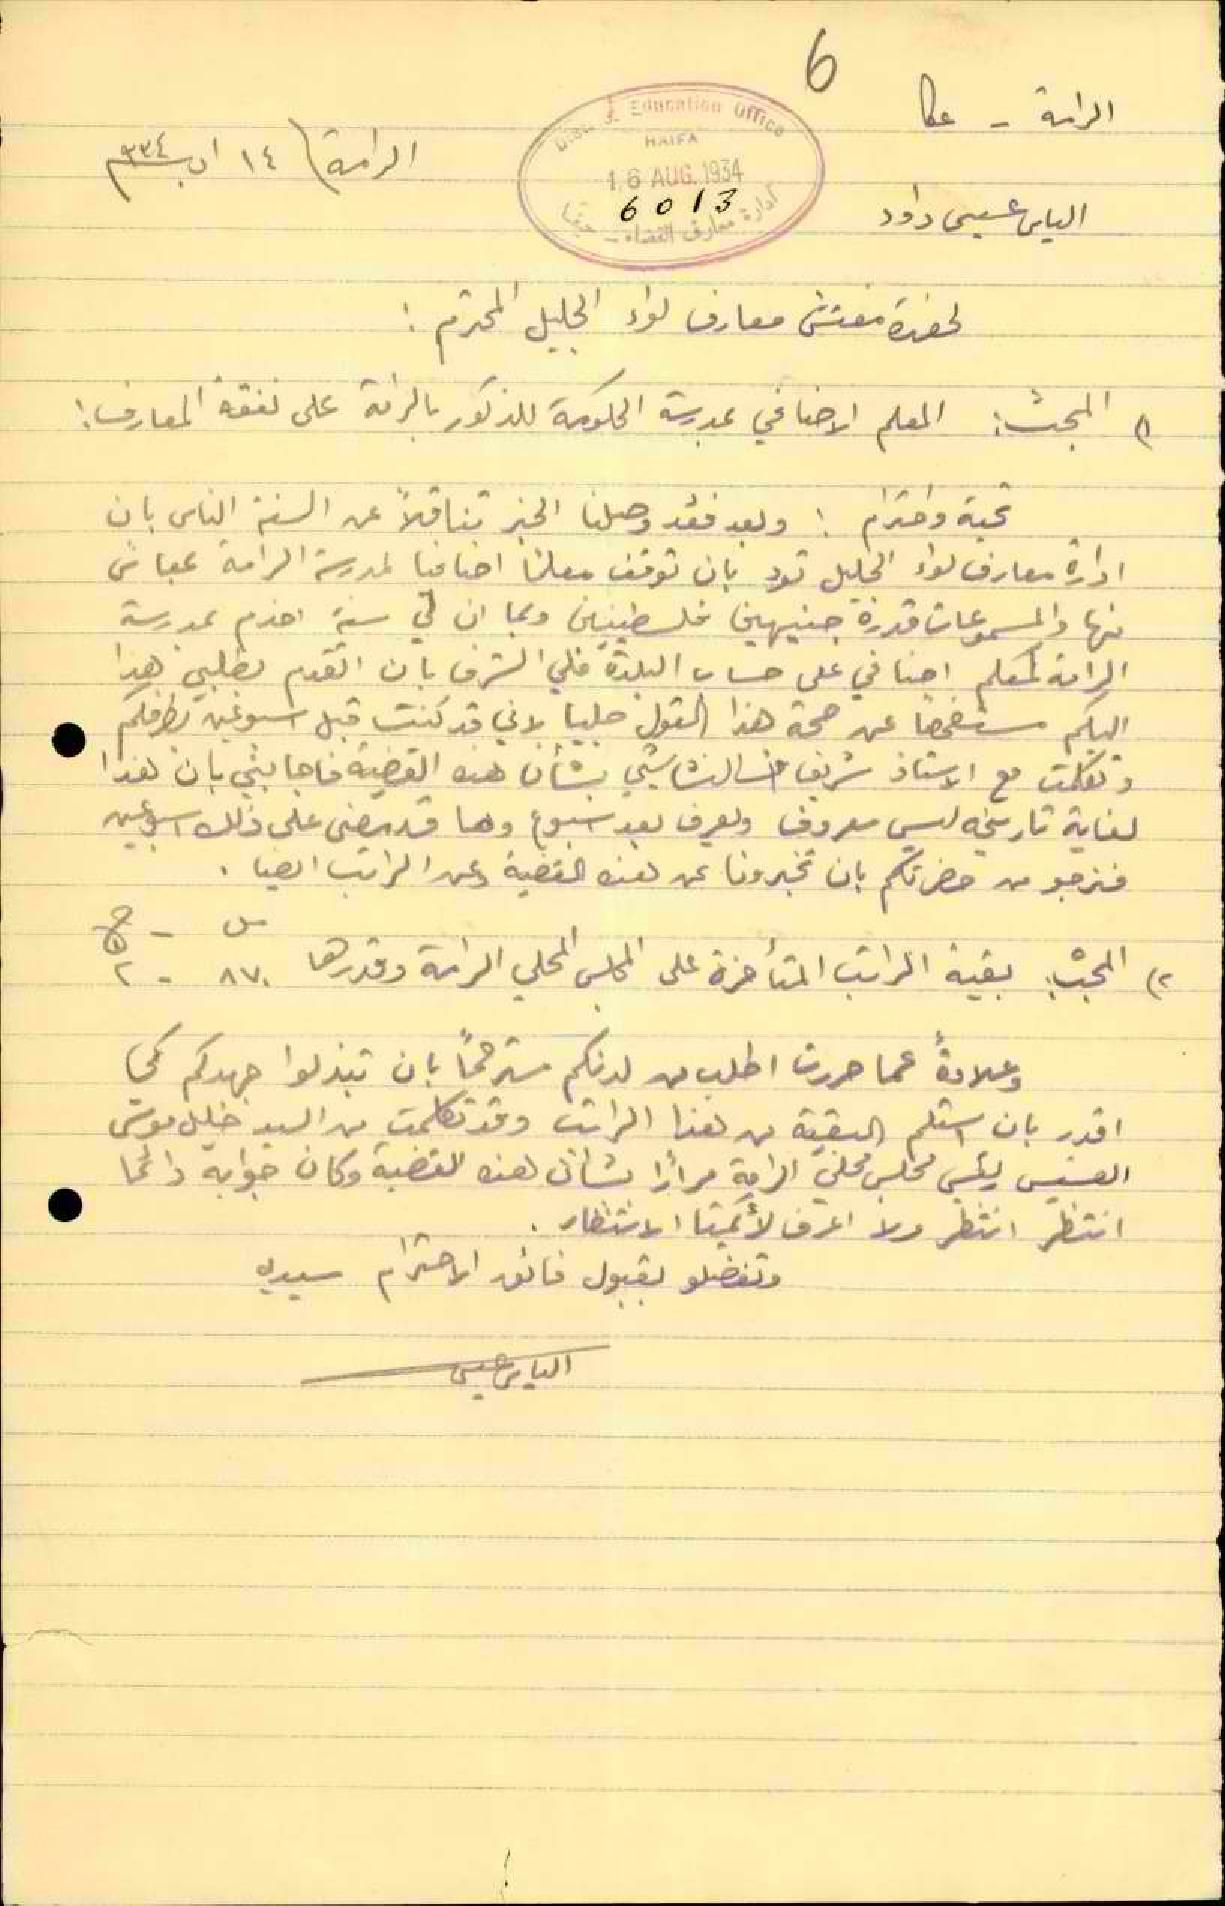 6
الرامة - عكا
District Education Office
HAIFA
16 AUG. 1934
6013
ادارة معارف القضاء - حيفا
الرامة / ١٤ اب ٩٣٤
الياس عيسى داود
لحضرة مفتش معارف لواء الجليل المحترم :
١) المبحث: المعلم الاضافي بمدرسة الحكومة للذكور بالرامة على نفقة المعارف:
تحية واحترام : وبعد فقد وصلنا الخبر تناقلاً عن السنة الناس بان
ادارة معارف لواء الجليل تود بان توقف معلمًا اضافيا لمدرسة الرامة بمعاش
منها والمسموعات قدره جنيهين فلسطينيين وبما ان لي سنة اخدم بمدرسة
الرامة كمعلم اضافي على حساب البلدة فلي الشرف بان اتقدم بطلبي هذا
اليكم مستفحصًا عن صحة هذا القول جليا لاني قد كنت قبل اسبوعين بطرفكم
وتكلمت مع الاستاذ شريف النشاشيبي بشأن هذه القضية فاجابني بان هذا
لغاية تاريخه ليس معروف ويعرف بعد اسبوع وها قد مضى على ذلك اسبوعين
فنرجو من حضرتكم بان تخبرونا عن هذه القضية وعن الراتب ايضا .
مل - ج
٢) المبحث: بقية الراتب المتأخرة على المجلس المحلي الرامة وقدرها ٨٧٠ - ٢
وعلاوةً عما حررت اطلب من لدنكم مسترحمًا بان تبذلوا جهدكم كي
اقدر بان استلم البقية من هذا الراتب وقد تكلمت من السيد خليل موسى
القسيس رئيس مجلس محلي الرامة مرارًا بشأن هذه القضية وكان جوابه دائما
انتظر انتظر ولا اعرف لأيمتا الانتظار .
وتفضلو بقبول فائق الاحترام سيدي
الياس عيسى